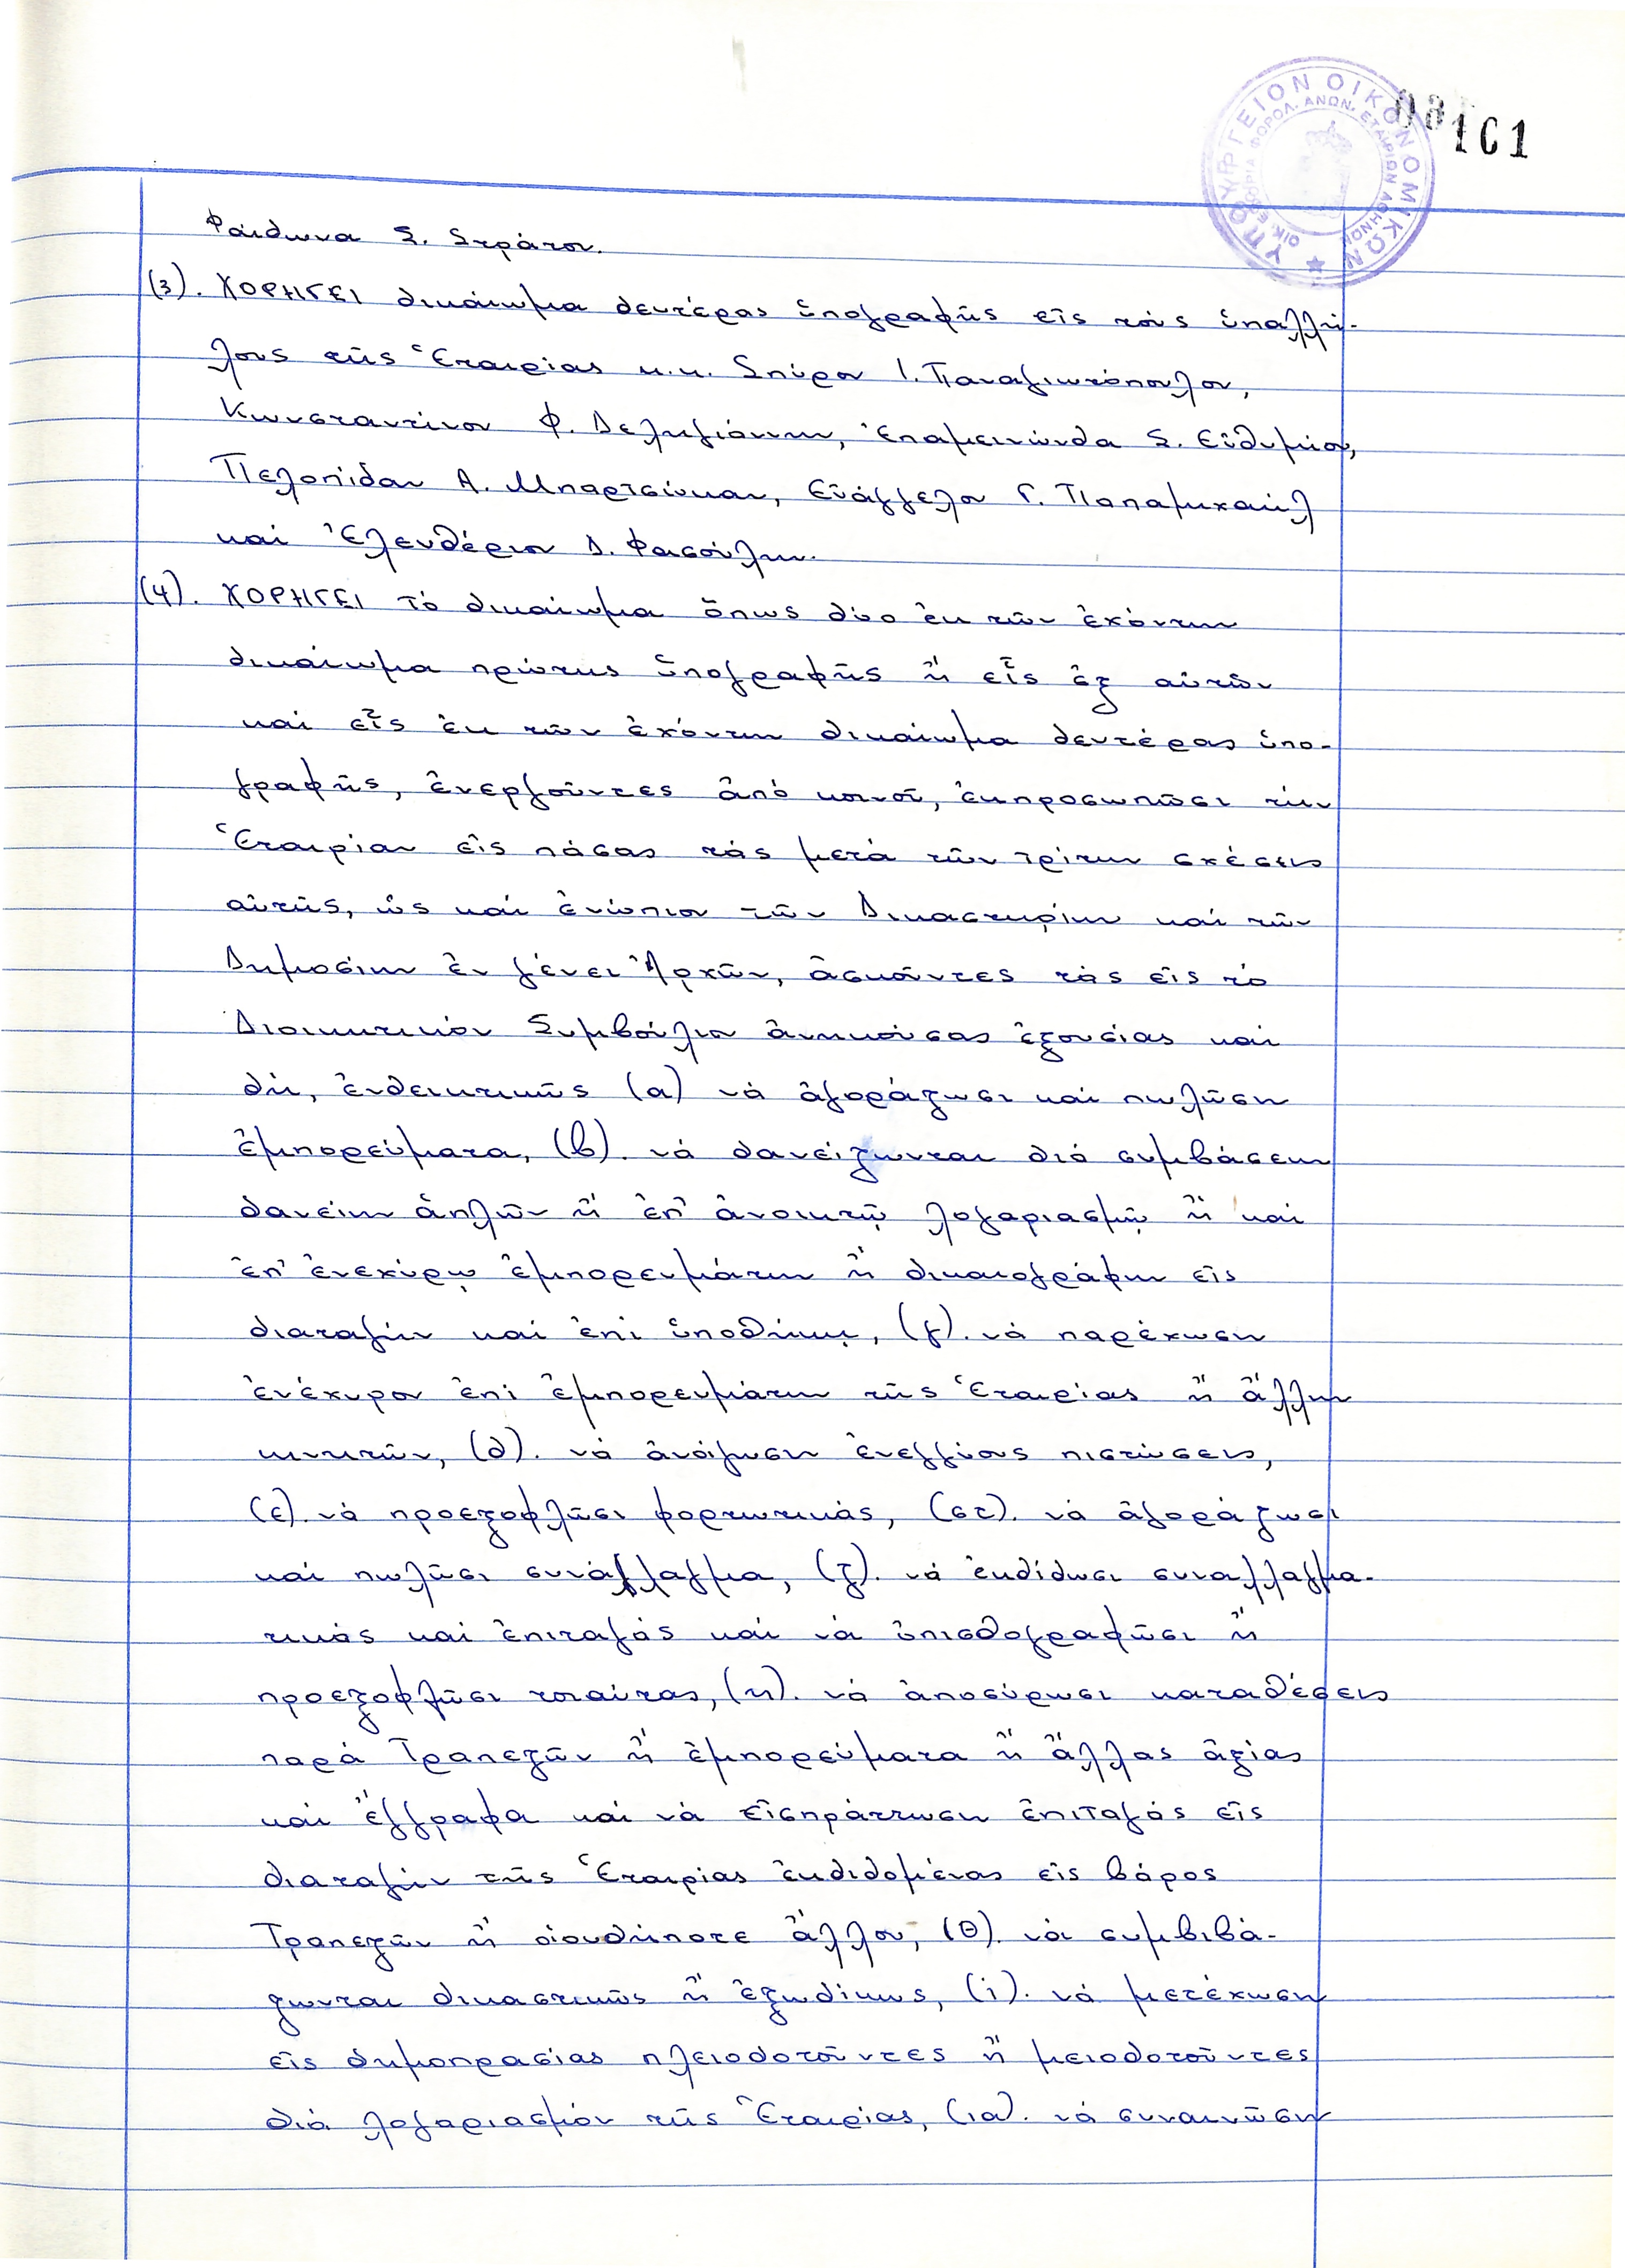 ΥΠΟΥΡΓΕΙΟΝ ΟΙΚΟΝΟΜΙΚΩΝ
ΟΙΚ. ΕΦΟΡΙΑ ΦΟΡΟΛ. ΑΝΩΝ. ΕΤΑΙΡΙΩΝ ΑΘΗΝΩΝ
161
Φαίδωνα Σ. Στράτον.
(3). ΧΟΡΗΓΕΙ δικαίωμα δευτέρας ὑπογραφῆς εἰς τούς ὑπαλλή-
λους τῆς Ἑταιρίας κ.κ. Σπύρον Ι. Παναγιωτόπουλον,
Κωνσταντίνον Φ. Δεληγιάννην, Ἐπαμεινώνδα Σ. Εὐθυμίου,
Πελοπίδαν Α. Μπαρτσώκαν, Εὐάγγελον Γ. Παπαμιχαήλ
καί Ἐλευθέριον Δ. Φασούλην.
(4). ΧΟΡΗΓΕΙ τό δικαίωμα ὅπως δύο ἐκ τῶν ἐχόντων
δικαίωμα πρώτης ὑπογραφῆς ἤ εἷς ἐξ αὐτῶν
καί εἷς ἐκ τῶν ἐχόντων δικαίωμα δευτέρας ὑπο-
γραφῆς, ἐνεργοῦντες ἀπό κοινοῦ, ἐκπροσωπῶσι τήν
Ἑταιρίαν εἰς πάσας τάς μετά τῶν τρίτων σχέσεις
αὐτῆς, ὡς καί ἐνώπιον τῶν Δικαστηρίων καί τῶν
Δημοσίων ἐν γένει Ἀρχῶν, ἀσκοῦντες τάς εἰς τό
Διοικητικόν Συμβούλιον ἀνηκούσας ἐξουσίας καί
δή, ἐνδεικτικῶς (α) νά ἀγοράζωσι καί πωλῶσιν
ἐμπορεύματα, (β). νά δανείζωνται διά συμβάσεων
δανείων ἁπλῶν ἤ ἐπ' ἀνοικτῷ λογαριασμῷ ἤ καί
ἐπ' ἐνεχύρῳ ἐμπορευμάτων ἤ δικαιογράφων εἰς
διαταγήν καί ἐπί ὑποθήκῃ, (γ). νά παρέχωσιν
ἐνέχυρον ἐπί ἐμπορευμάτων τῆς Ἑταιρίας ἤ ἄλλων
κινητῶν, (δ). νά ἀνοίγωσιν ἐνεγγύους πιστώσεις,
(ε). νά προεξοφλῶσι φορτωτικάς, (στ). νά ἀγοράζωσι
καί πωλῶσι συνάλλαγμα, (ζ). νά ἐκδίδωσι συναλλαγμα-
τικάς καί ἐπιταγάς καί νά ὀπισθογραφῶσι ἤ
προεξοφλῶσι τοιαύτας, (η). νά ἀποσύρωσι καταθέσεις
παρά Τραπεζῶν ἤ ἐμπορεύματα ἤ ἄλλας ἀξίας
καί ἔγγραφα καί νά εἰσπράττωσιν ἐπιταγάς εἰς
διαταγήν τῆς Ἑταιρίας ἐκδιδομένας εἰς βάρος
Τραπεζῶν ἤ οἱουδήποτε ἄλλου, (θ). νά συμβιβά-
ζωνται δικαστικῶς ἤ ἐξωδίκως, (ι). νά μετέχωσιν
εἰς δημοπρασίας πλειοδοτοῦντες ἤ μειοδοτοῦντες
διά λογαριασμόν τῆς Ἑταιρίας, (ια). νά συναινῶσιν